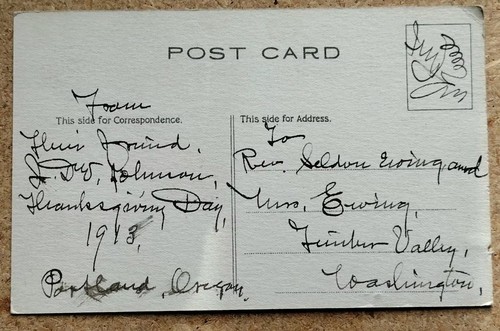 POST CARD
From
This side for Correspondence.
Their Friend,
J. D. W. Johnson,
Thanksgiving Day,
1913,
Portland, Oregon.
This side for Address.
To
Rev. Seldon Ewing and
Mrs. Ewing,
Timber Valley,
Washington,